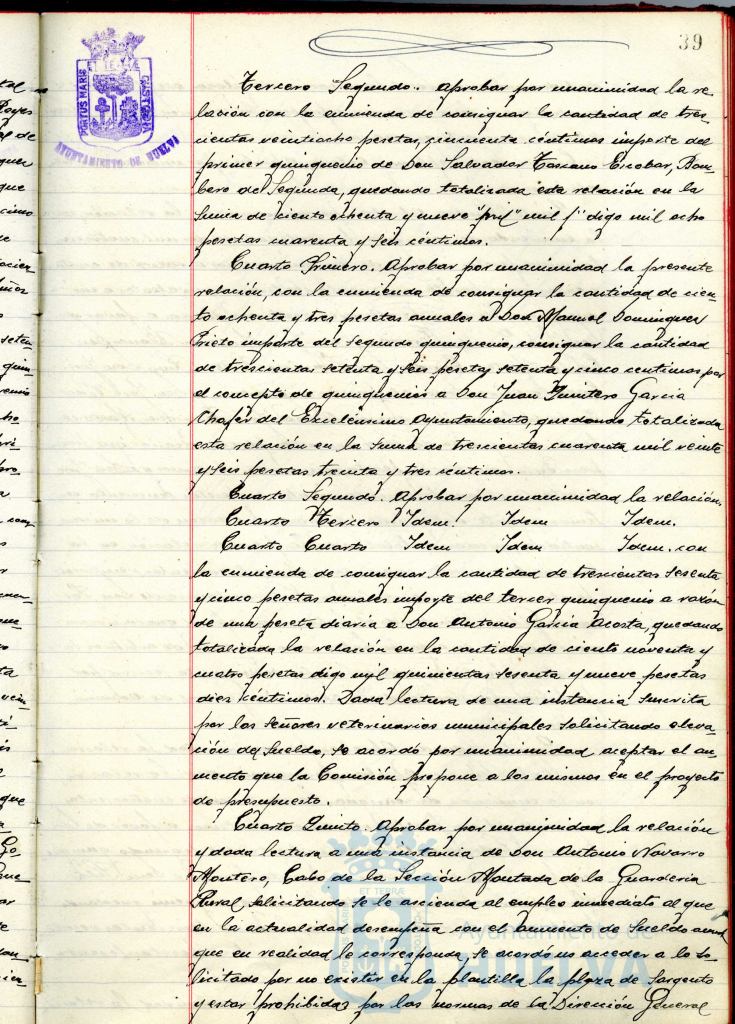 39
PORTUS MARIS ET TERRÆ CUSTODIA
AYUNTAMIENTO DE HUELVA
Tercero Segundo. Aprobar por unanimidad la re-
lación con la enmienda de consignar la cantidad de tres-
cientas veintiocho pesetas, cincuenta céntimos importe del
primer quinquenio de Don Salvador Toscano Escobar, Bom-
bero de Segunda, quedando totalizada esta relación en la
suma de ciento ochenta y nueve mil digo mil ocho
pesetas cuarenta y seis céntimos.
Cuarto Primero. Aprobar por unanimidad la presente
relación, con la enmienda de consignar la cantidad de cien-
to ochenta y tres pesetas anuales a Don Manuel Dominguez
Prieto importe del segundo quinquenio, consignar la cantidad
de trescientas setenta y seis pesetas setenta y cinco centimos por
el concepto de quinquenios a Don Juan Quintero Garcia
Chofer del Excelentisimo Ayuntamiento, quedando totalizada
esta relación en la suma de trescientas cuarenta mil veinte
y seis pesetas treinta y tres céntimos.
Cuarto Segundo. Aprobar por unanimidad la relación.
Cuarto Tercero Idem Idem Idem.
Cuarto Cuarto Idem Idem Idem. con
la enmienda de consignar la cantidad de trescientas sesenta
y cinco pesetas anuales importe del tercer quinquenio a razón
de una peseta diaria a Don Antonio Garcia Acosta, quedando
totalizada la relación en la cantidad de ciento noventa y
cuatro pesetas digo mil quinientas sesenta y nueve pesetas
diez céntimos. Dada lectura de una instancia suscrita
por los señores veterinarios municipales solicitando eleva-
ción de sueldo, se acordó por unanimidad aceptar el au-
mento que la Comisión propone a los mismos en el proyecto
de presupuesto.
Cuarto Quinto. Aprobar por unanimidad la relación
y dada lectura a una instancia de Don Antonio Navarro
Montero, Cabo de la Sección Montada de la Guarderia
Rural, solicitando se le ascienda al empleo inmediato al que
en la actualidad desempeña con el aumento de sueldo anual
que en realidad le corresponda, se acordó no acceder a lo so-
licitado por no existir en la plantilla la plaza de Sargento
y estar prohibidas por las normas de la Dirección General
Ayuntamiento de
HUELVA